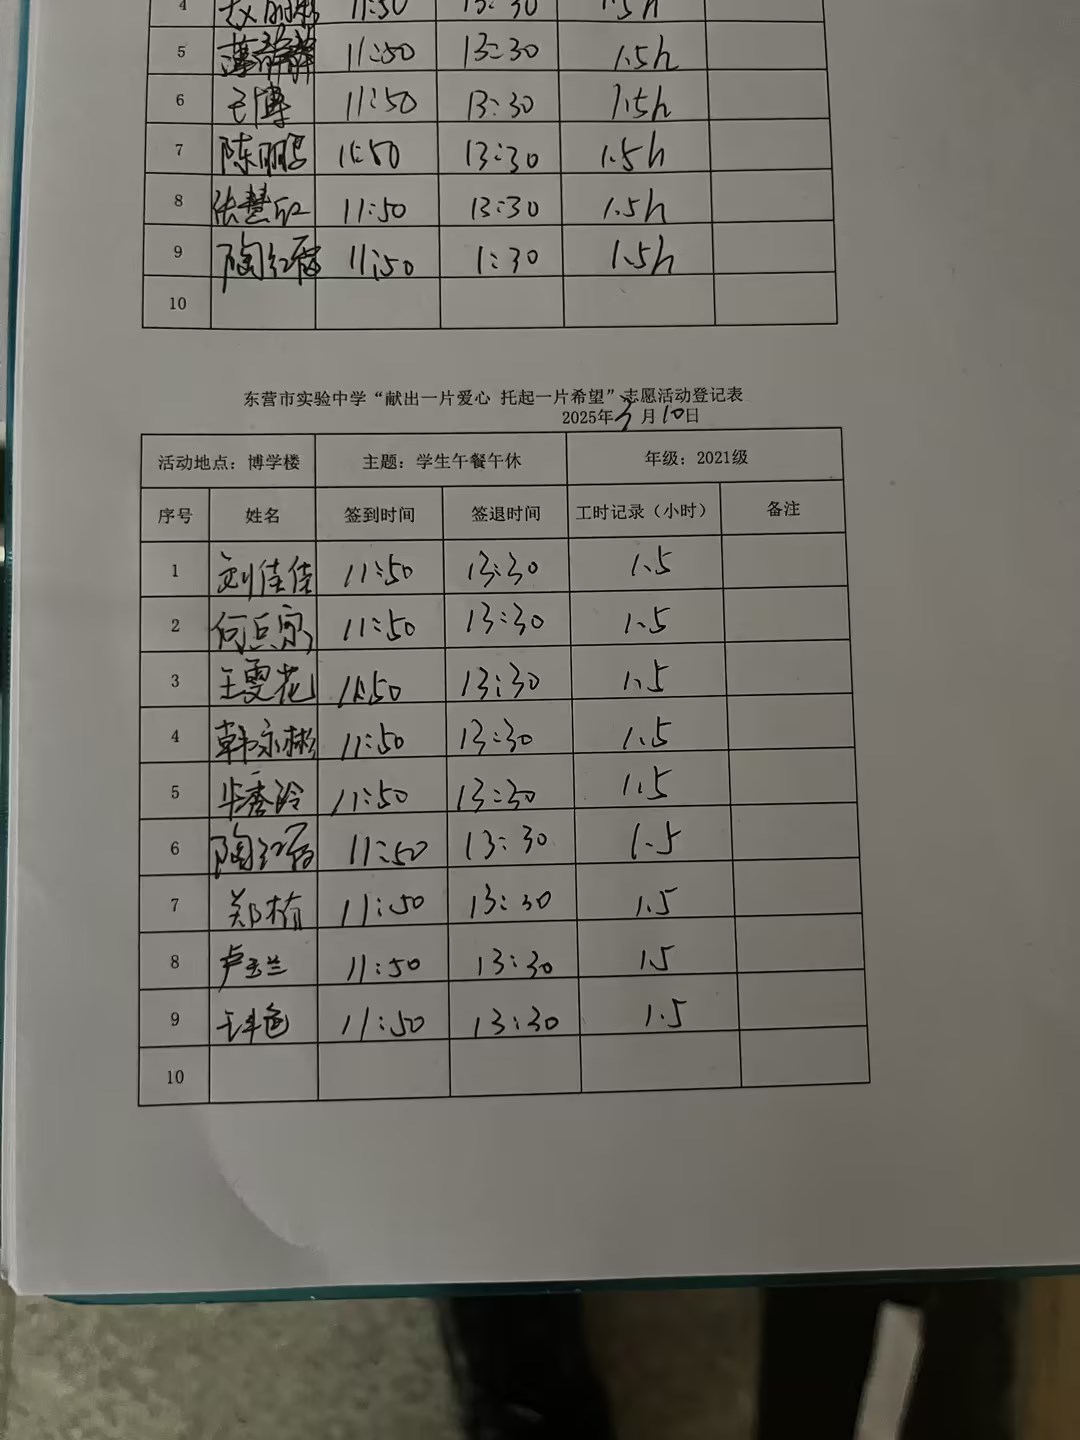 4 11:50 13:30 1.5h
5 薄静静 11:50 13:30 1.5h
6 王博 11:50 13:30 1.5h
7 陈丽鹏 11:50 13:30 1.5h
8 张慧红 11:50 13:30 1.5h
9 陶红 11:50 1:30 1.5h
10
东营市实验中学“献出一片爱心 托起一片希望”志愿活动登记表
2025年3月10日
活动地点：博学楼 主题：学生午餐午休 年级：2021级
序号 姓名 签到时间 签退时间 工时记录（小时） 备注
1 刘佳佳 11:50 13:30 1.5
2 何兵 11:50 13:30 1.5
3 王雯花 11:50 13:30 1.5
4 韩永彬 11:50 13:30 1.5
5 华秀玲 11:50 13:30 1.5
6 陶红 11:50 13:30 1.5
7 郑 11:50 13:30 1.5
8 卢玉兰 11:50 13:30 1.5
9 11:50 13:30 1.5
10